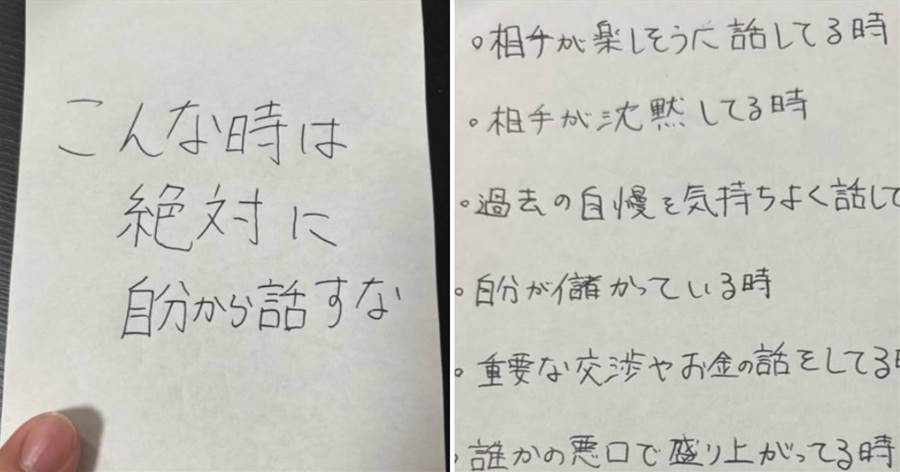 こんな時は
絶対に
自分から話すな
。相手が楽しそうに話してる時
。相手が沈黙してる時
。過去の自慢を気持ちよく話して
。自分が儲かっている時
。重要な交渉やお金の話をしてる時
。誰かの悪口で盛り上がってる時